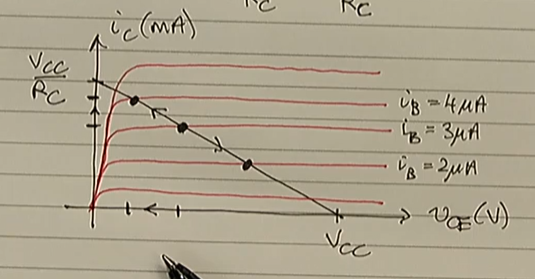 R_C R_C
i_C (mA)
V_CC
R_C
i_B = 4μA
i_B = 3μA
i_B = 2μA
V_CE (V)
V_CC